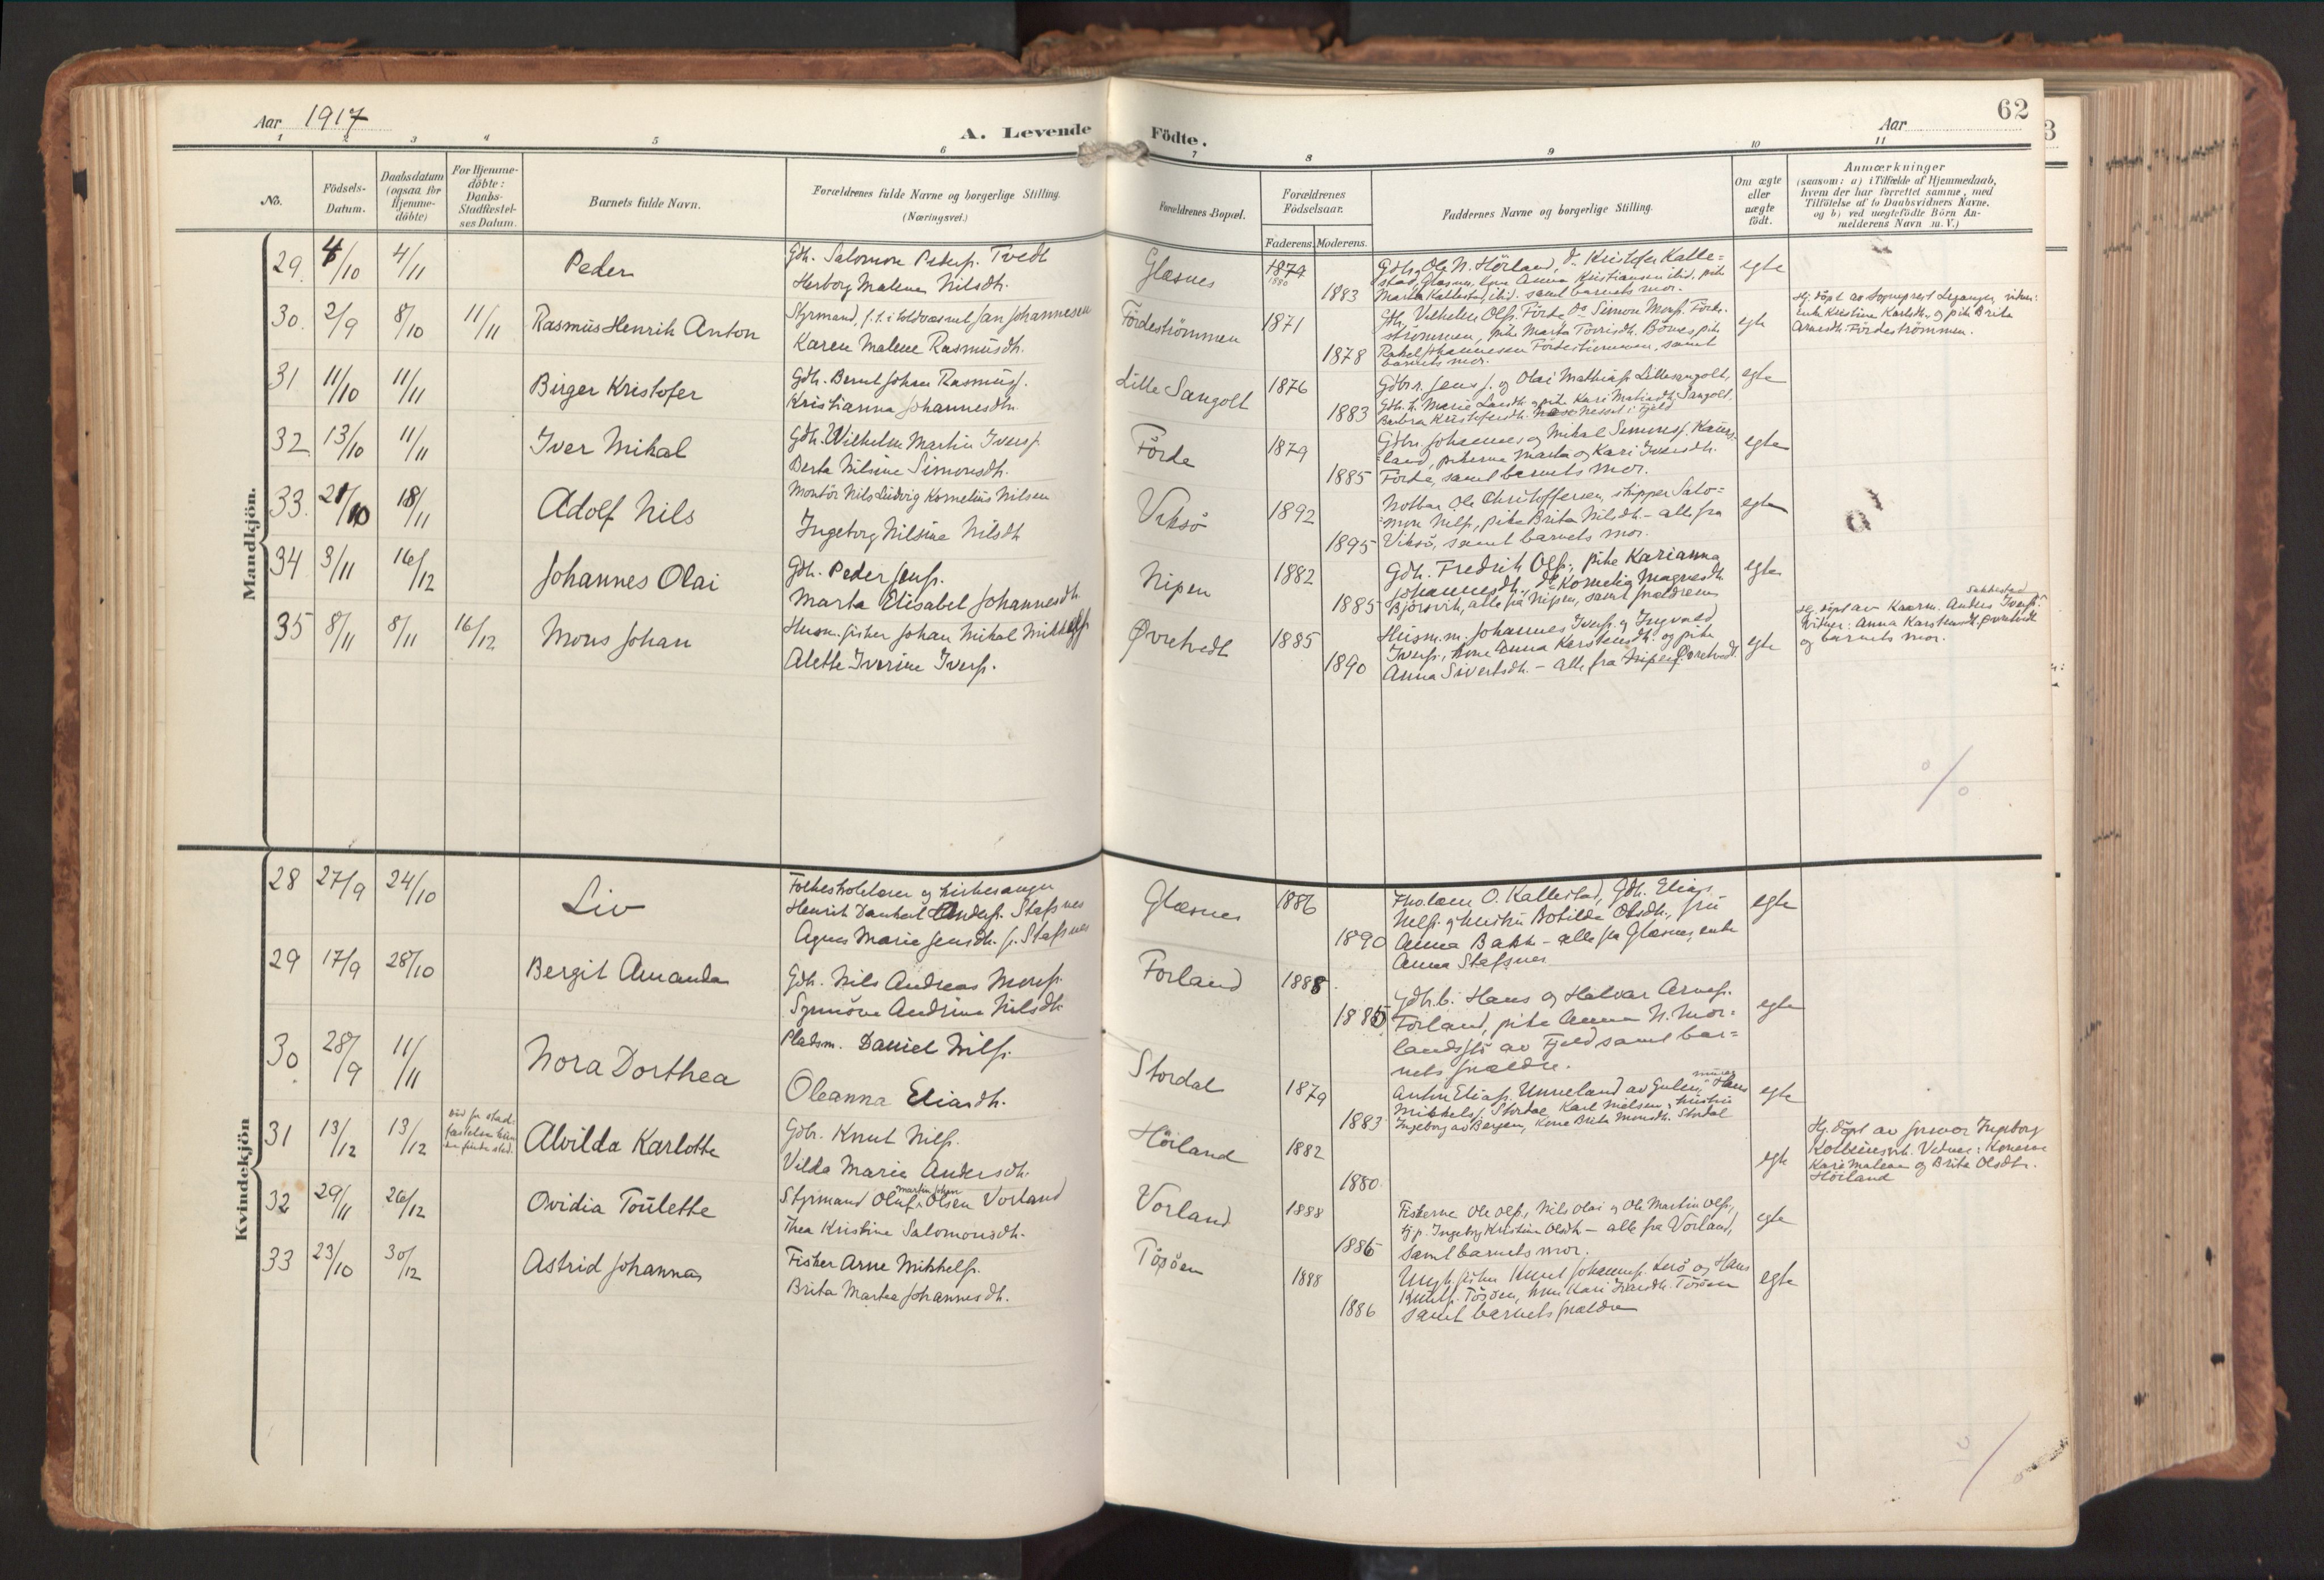 Aar 1917
A. Levende
Födte.
Aar
62
3
1 2 3 4 5 6 7 8 9 10 11
No.
Födsels-
Datum.
Daabsdatum
(ogsaa for
Hjemme-
döbte)
For Hjemme-
döbte:
Daabs-
Stadfæstel-
ses Datum.
Barnets fulde Navn.
Forældrenes fulde Navne og borgerlige Stilling.
(Næringsvei.)
Forældrenes Bopæl.
Forældrenes
Födselsaar.
Faderens. Moderens.
Faddernes Navne og borgerlige Stilling.
Om ægte
eller
uægte
födt.
Anmærkninger
(saasom: a) i Tilfælde af Hjemmedaab,
hvem der har forrettet samme, med
Tilföielse af to Daabsvidners Navne,
og b) ved uægtefödte Börn An-
melderens Navn m. V.)
Mandkjön.
29. 4/10 4/11 Peder
Gdh. Salomon Peders. Tvedt
Herborg Malene Nilsdh.
Glæsnes 1874 1880 1883
Gdhr. Ole N. Hörland, do Kristofer Kalle=
stad, Glæsnes, kone Anna Kristiansen ibid., pike
Marta Kallestad, ibid. samt barnets mor.
egte
30. 2/9 8/10 11/11 Rasmus Henrik Anton
Styrmand, f.t. i toldvæsenet Jan Johannesen
Karen Malene Rasmusdh.
Fördeströmmen 1871 1878
Gh. Vilhelm Ols. Förde, do Simon Mons. Förde-
strömmen, pike Marta Torrisdh. Bönes, pike
Rakel Johannesen Fördeströmmen, samt
barnets mor.
egte
Hj. döpt av Sogneprest vidner:
enke Kristine Karlsdh. og pike Brita
Arnesdh. Fördeströmmen.
31 11/10 11/11 Birger Kristofer
Gdh. Bernt Johan Rasmuss.
Kristianna Johannesdh.
Lille Sangolt 1876 1883
Gdbr. Jens J. og Olai Mathias. Lillesangolt,
Gdh. h. Marie Larsdh. og pike Kari Matiasdh. Sangolt.
Barbra Kristofersdh. Nesset i Fjeld
egte
32 13/10 11/11 Iver Mikal
Gdh. Wilhelm Martin Ivers.
Berta Nilsine Simonsdh.
Förde 1879 1885
Gdbr. Johannes og Mikal Simons. Kaurs-
land, pikerne Marta og Kari Iversdh.
Förde, samt barnets mor.
egte
33. 21/10 18/11 Adolf Nils
Montör Nils Ludvig Kornelius Nilsen
Ingeborg Nilsine Nilsdh.
Viksö 1892 1895
Notbas Ole Christoffersen, skipper Salo=
mon Nils., pike Brita Nilsdh. - alle fra
Viksö, samt barnets mor.
egte
34 3/11 16/12 Johannes Olai
Gdh. Peder Jens.
Marta Elisabet Johannesdh.
Nipen 1882 1885
Gdh. Fredrik Ols., pike Karianna
Johannesdh. do Kornelia Magnesdh.
Björsvik, alle på Nipen, samt forældrene
egte
35 8/11 8/11 16/12 Mons Johan
Husm. fisker Johan Mikal Mikkels.
Alette Iverine Ivers.
Øvretvedt 1885 1890
Husm.m. Johannes Ivers. og Ingvald
Ivers., kone Anna Karstensdh. og pike
Anna Sivertsdh. - alle fra Øvretvedt.
egte
Hj. döpt av Anders Ivers.
Vidner: Anna Karstensdh. Øvretvedt
og barnets mor.
Kvindekjön
28 27/9 24/10 Liv
Folkeskolelærer og kirkesanger
Henrik Anders. Stafsnes
Agnes Marie Jensdh. f. Stafsnes
Glæsnes 1886 1890
O. Kallestad, Gdh. Elias
Nils. og hustru Botilda Olsdh., fru
Anna Bakk - alle fra Glæsnes, enke
Anna Stafsnes
egte
29 17/9 28/10 Bergit Amanda
Gdh. Nils Andreas Mons.
Synnöve Andrine Nilsdh.
Forland 1888 1885
Gdh.b. Hans og Halvar Arnes.
Forland, pike Anna N. Mor=
av Fjeld samt bar=
nets forældre.
egte
30. 28/9 11/11 Nora Dorthea
Pladsm. Daniel Nils.
Oleanna Eliasdh.
Stordal 1879 1883
Anton Elias. Unneland av Gulen, Hans
Mikkels. Stordal, Karl Nielsen, hustru
Ingeborg av Bergen, kone Brita Monsdh. Stordal
egte
31 13/12 13/12
Alvilda Karlotte
Gdbr. Knut Nils.
Vilda Marie Andersdh.
Hörland 1882 1880.
egte
Hj. döpt av jormor Ingeborg
Vidner: Konerne
Kari Malene og Brita Olsdh.
Hörland
32 29/11 26/12 Ovidia Toulette
Styrmand Oluf Martin Johan Olsen Vorland
Thea Kristine Salomonsdh.
Vorland 1888 1886
Fiskerne Ole Ols., Nils Olai og Ole Martin Ols.,
tj.p. Ingeborg Kristine Olsdh. - alle fra Vorland,
samt barnets mor.
egte
33 23/10 30/12 Astrid Johanna
Fisker Arne Mikkels.
Brita Martea Johannesdh.
Tösöen 1888 1886
Ungk. fisker Knut Johannes. Lerö og Hans
Knuts. Tösöen, kone Kari Tösöen
samt barnets forældre
egte